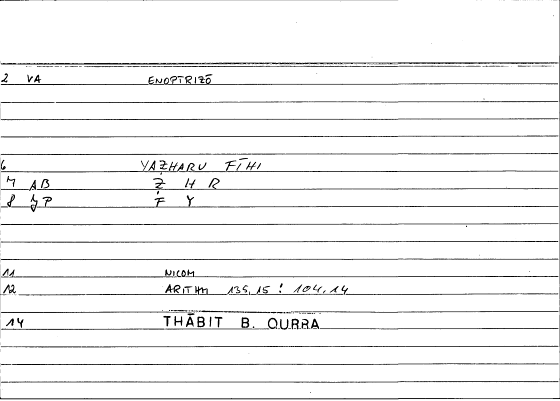 2 VA ENOPTRIZŌ
6 YAẒHARU FĪHI
7 AB Ẓ H R
8 JP F Y
11 NICOM
12 ARITHM 135,15 : 104,14
14 THĀBIT B. QURRA